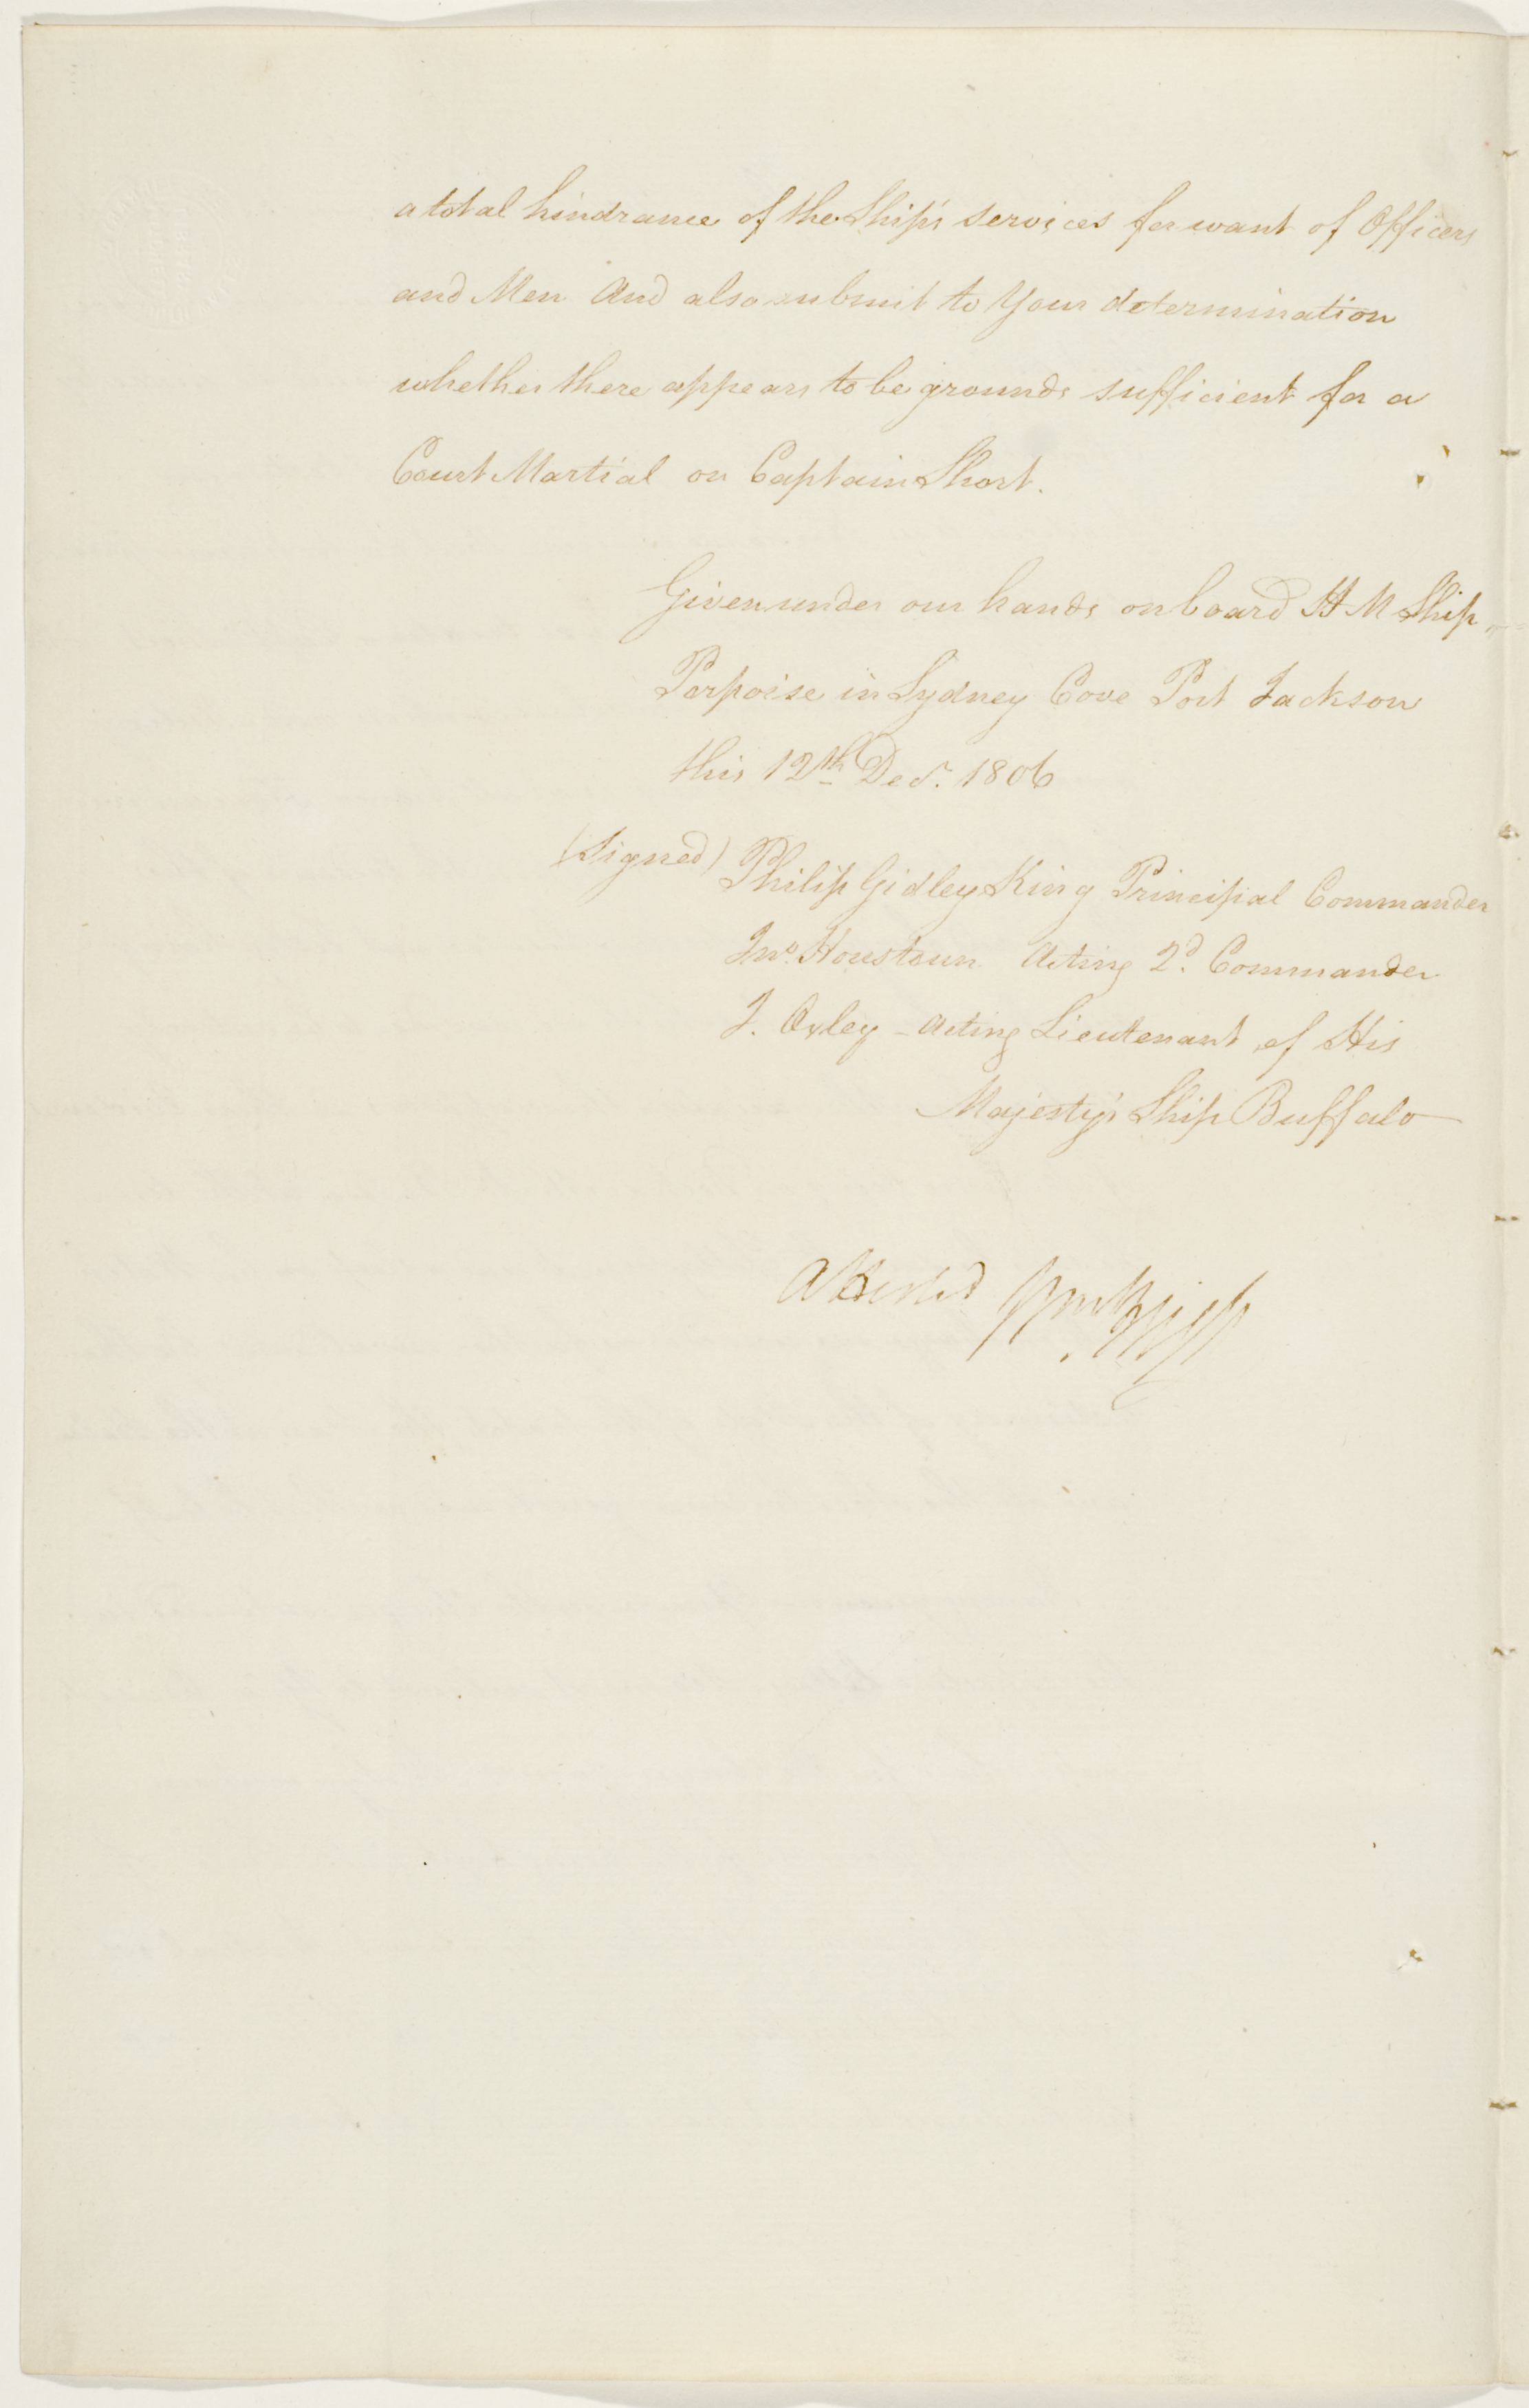 a total hindrance of the Ship's services for want of Officers
and Men And also submit to Your determination
whether there appears to be grounds sufficient for a
Court Martial on Captain Short.
Given under our hands on board H M Ship
Porpoise in Sydney Cove Port Jackson
this 12th Decr. 1806
(Signed) Philip Gidley King Principal Commander
Jno. Houstoun Acting 2d. Commander
J. Oxley - Acting Lieutenant of His
Majesty's Ship Buffalo
Attested Wm Bligh